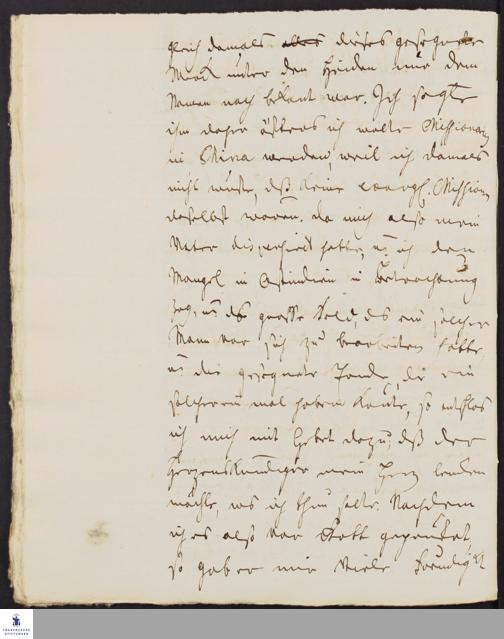 gleich damals alles dieses gesegnete
Werck unter den Heiden nur dem
Namen nach bekant war. Ich sagte
ihm daher öfters ich wolte Missionar
in China werden, weil ich damals
nicht wuste, daß keine evangl. Mission
daselbst waren. Da mich also mein
Vater hatte, u. ich den
Mangel in Ostindien in Betrachtung
zog, u. das grosse Feld, das ein solcher
Mann vor sich zu bearbeiten hatte
u. die gesegnete, die ein
solcher einmal haben könte, so
ich mich mit Gebet dazu, daß der
Herzenskündiger mein Herz lencken
möchte, was ich thun solte. Nachdem
ich es also vor Gott
so gab er mir viele Freudigkt
FRANCKESCHE
STIFTUNGEN